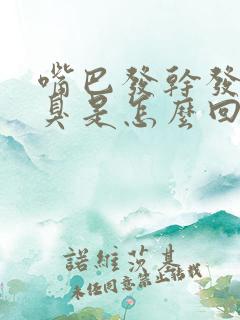 嘴巴發幹發
臭是怎麼回
諾維莎基
未經同意禁止轉載